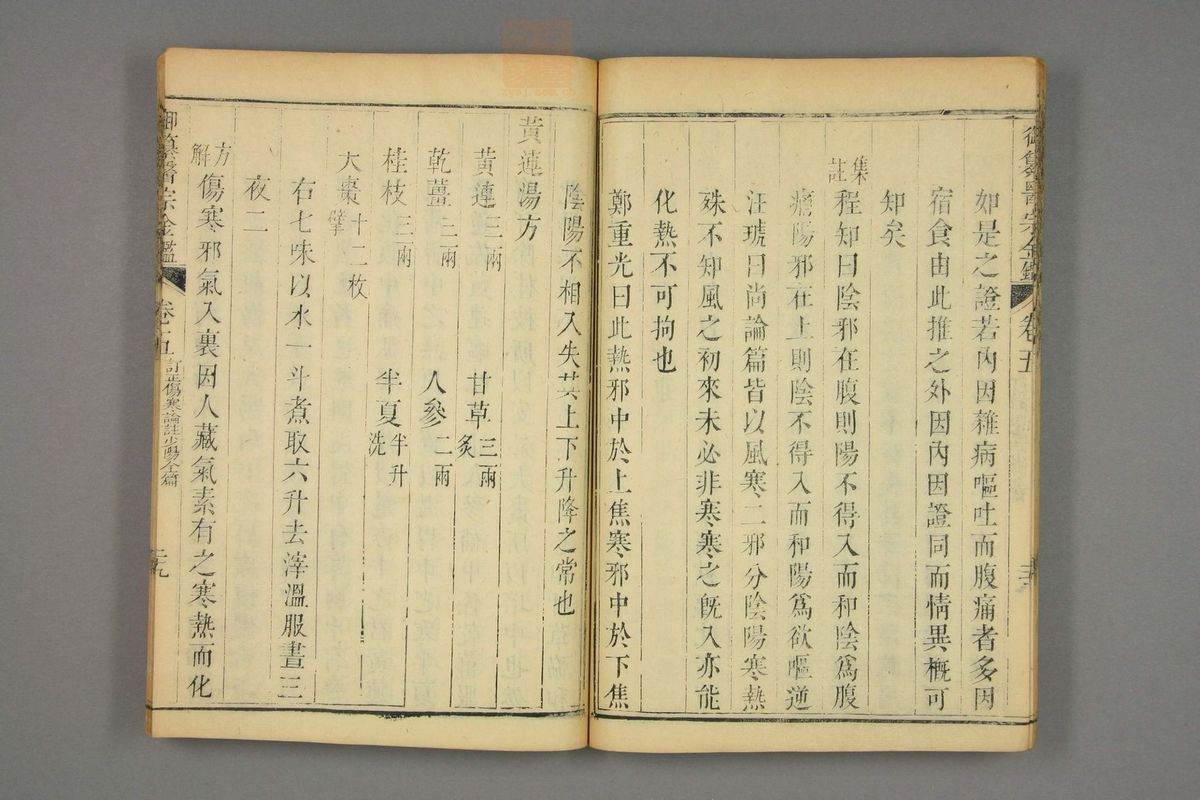 御纂醫宗金鑑 卷五
如是之證若內因雜病嘔吐而腹痛者多因
宿食由此推之外因內因證同而情異概可
知矣
集註程知曰陰邪在腹則陽不得入而和陰為腹
痛陽邪在上則陰不得入而和陽為欲嘔逆
汪琥曰尚論篇皆以風寒二邪分陰陽寒熱
殊不知風之初來未必非寒寒之既入亦能
化熱不可拘也
鄭重光曰此熱邪中於上焦寒邪中於下焦
陰陽不相入失其上下升降之常也
黃連湯方
黃連三兩 甘草三兩炙
乾薑三兩 人參二兩
桂枝三兩 半夏半升洗
大棗十二枚擘
右七味以水一斗煮取六升去滓溫服晝三
夜二
方解傷寒邪氣入裏因人藏氣素有之寒熱而化
御纂醫宗金鑑 卷五 訂正傷寒論註少陽全篇 二十九